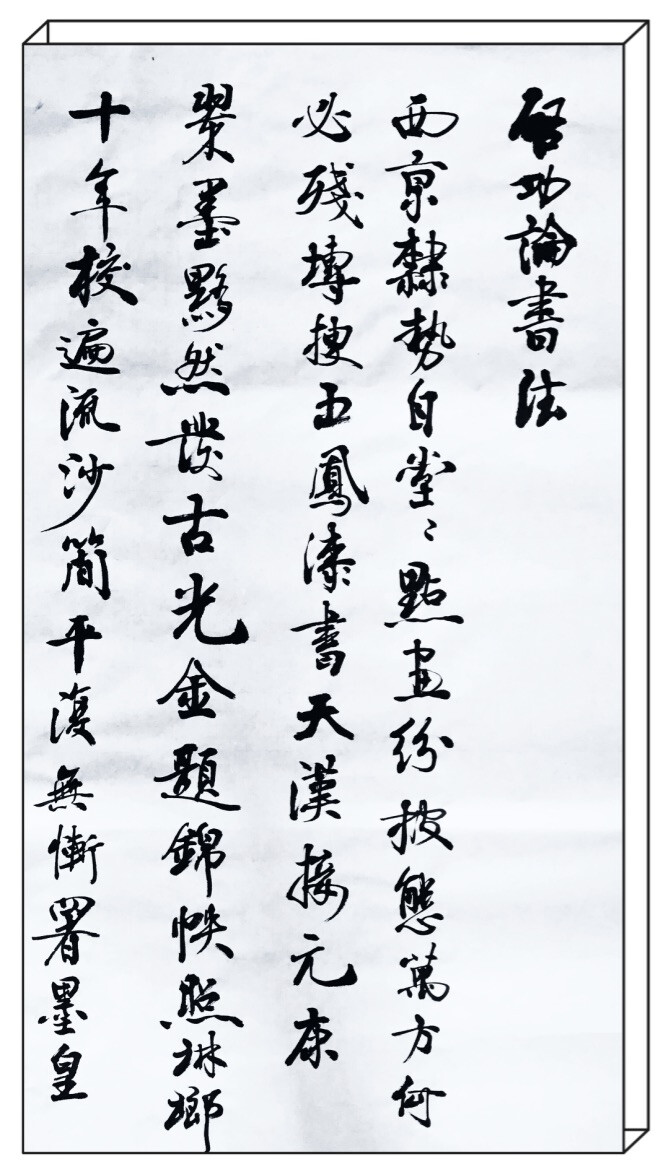 啓功論書法
西京隸勢自堂〻點畫紛披態萬方何
必殘塼搜五鳳漆書天漢接元康
翠墨黟然發古光金題錦帙照琳瑯
十年校遍流沙簡平復無慚署墨皇